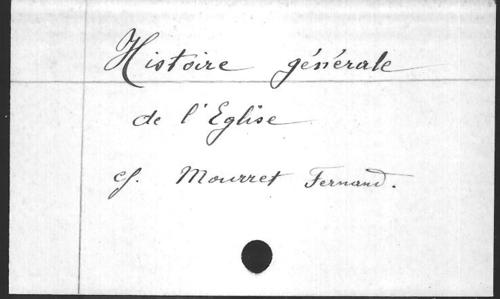 Histoire générale
de l'Eglise
cf. Mourret Fernand.